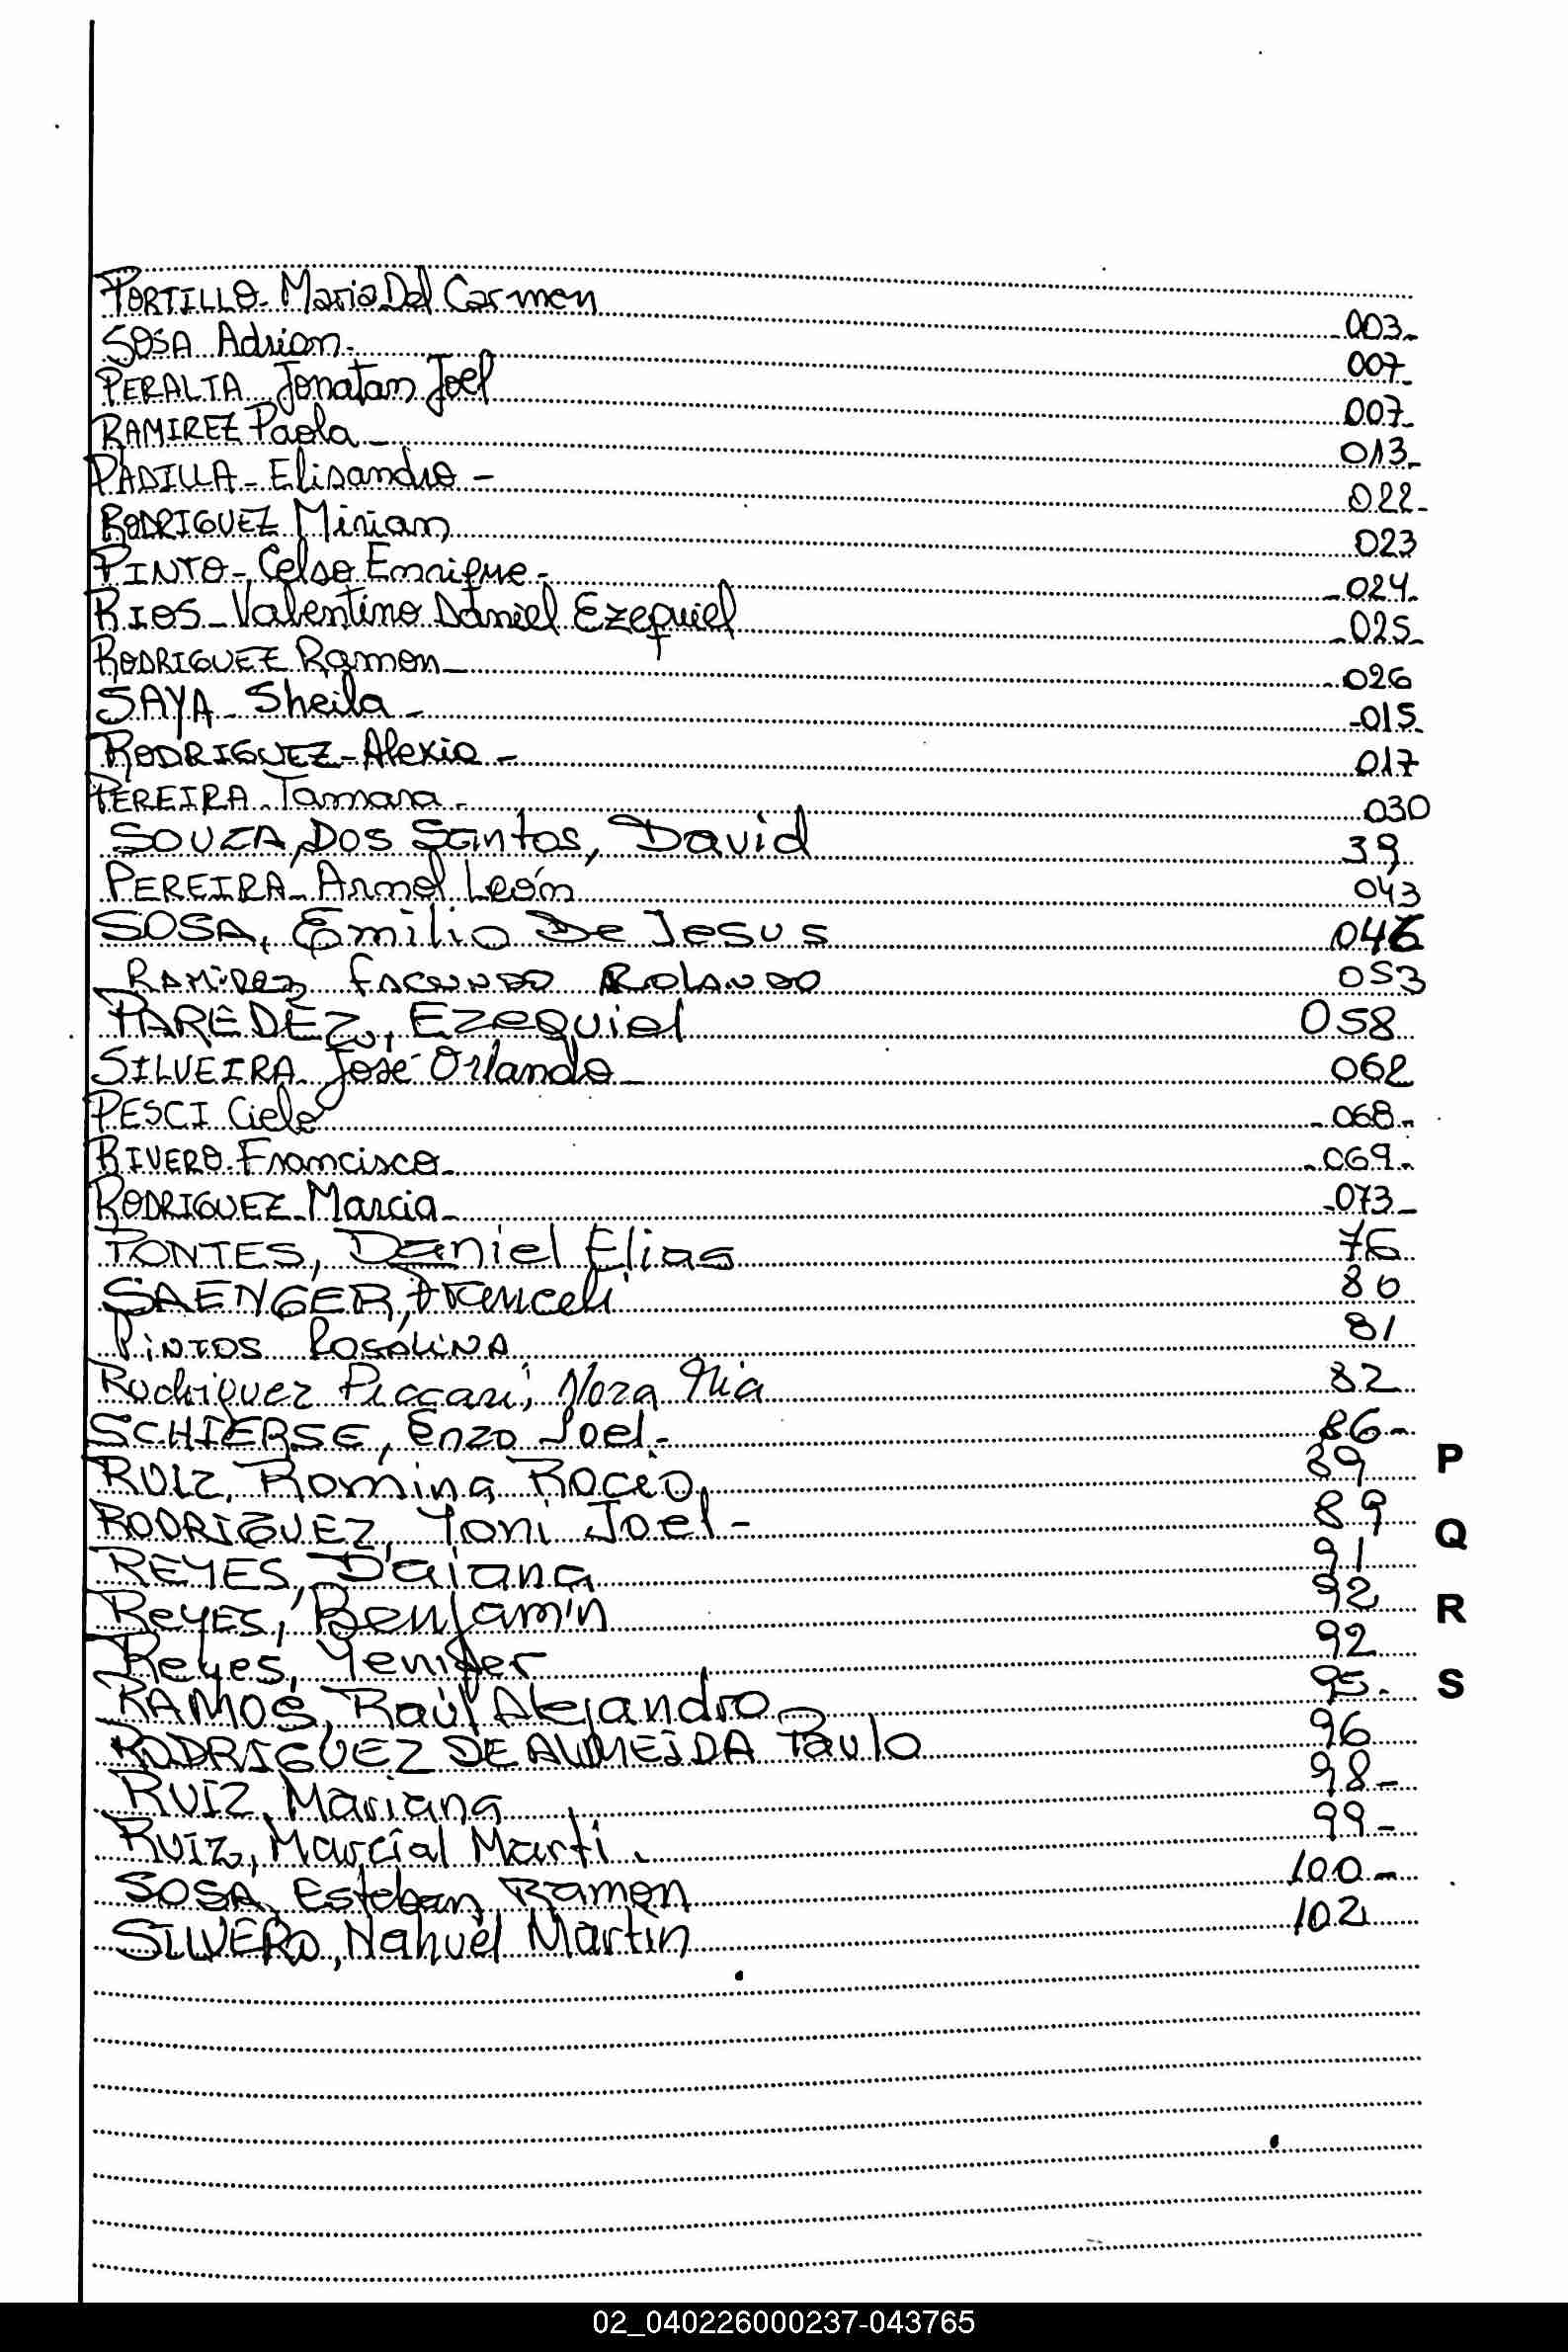 PORTILLO- Maria Del Carmen 003-
SOSA Adrian- 007-
PERALTA Jonatan Joel 007-
RAMIREZ Paola - 013-
PADILLA - Elisandro - 022-
RODRIGUEZ Mirian 023
PINTO - Celso Enrrique - -024-
RIOS - Valentino Daniel Ezequiel -025-
RODRIGUEZ Ramon - -026
SAYA - Sheila - -015-
RODRIGUEZ - Alexia - 017
PEREIRA - Tamara - 030
SOUZA, DOS Santos, David 39
PEREIRA - Armol León 043
SOSA, Emilio De Jesus 046
RAMIREZ FACUNDO ROLANDO 053
PAREDEZ, Ezequiel 058
SILVEIRA José Orlando - 062
PESCI Cielo -068-
RIVERO- Francisco- -069-
RODRIGUEZ- Marcia- -073-
PONTES, Daniel Elias 76
SAENGER, Franceli 80
PINTOS ROSALINA 81
Rodriguez Piccari, Nora Mia 82
SCHIERSE, Enzo Joel.- 86-
RUIZ, Romina Rocio, 89
RODRIGUEZ, Yoni Joel - 89
REYES, Daiana 91
ReyES, Benjamin 92
Reyes, Yenifer 92
RAMOS, Raúl Alejandro 95.
RODRIGUEZ DE ALMEIDA Paulo 96
RUIZ, Mariana 98-
RUIZ, Marcial Marti. 99-
SOSA, Esteban Ramon 100-
SILVERO, Nahuel Martin 102
P
Q
R
S
02_040226000237-043765